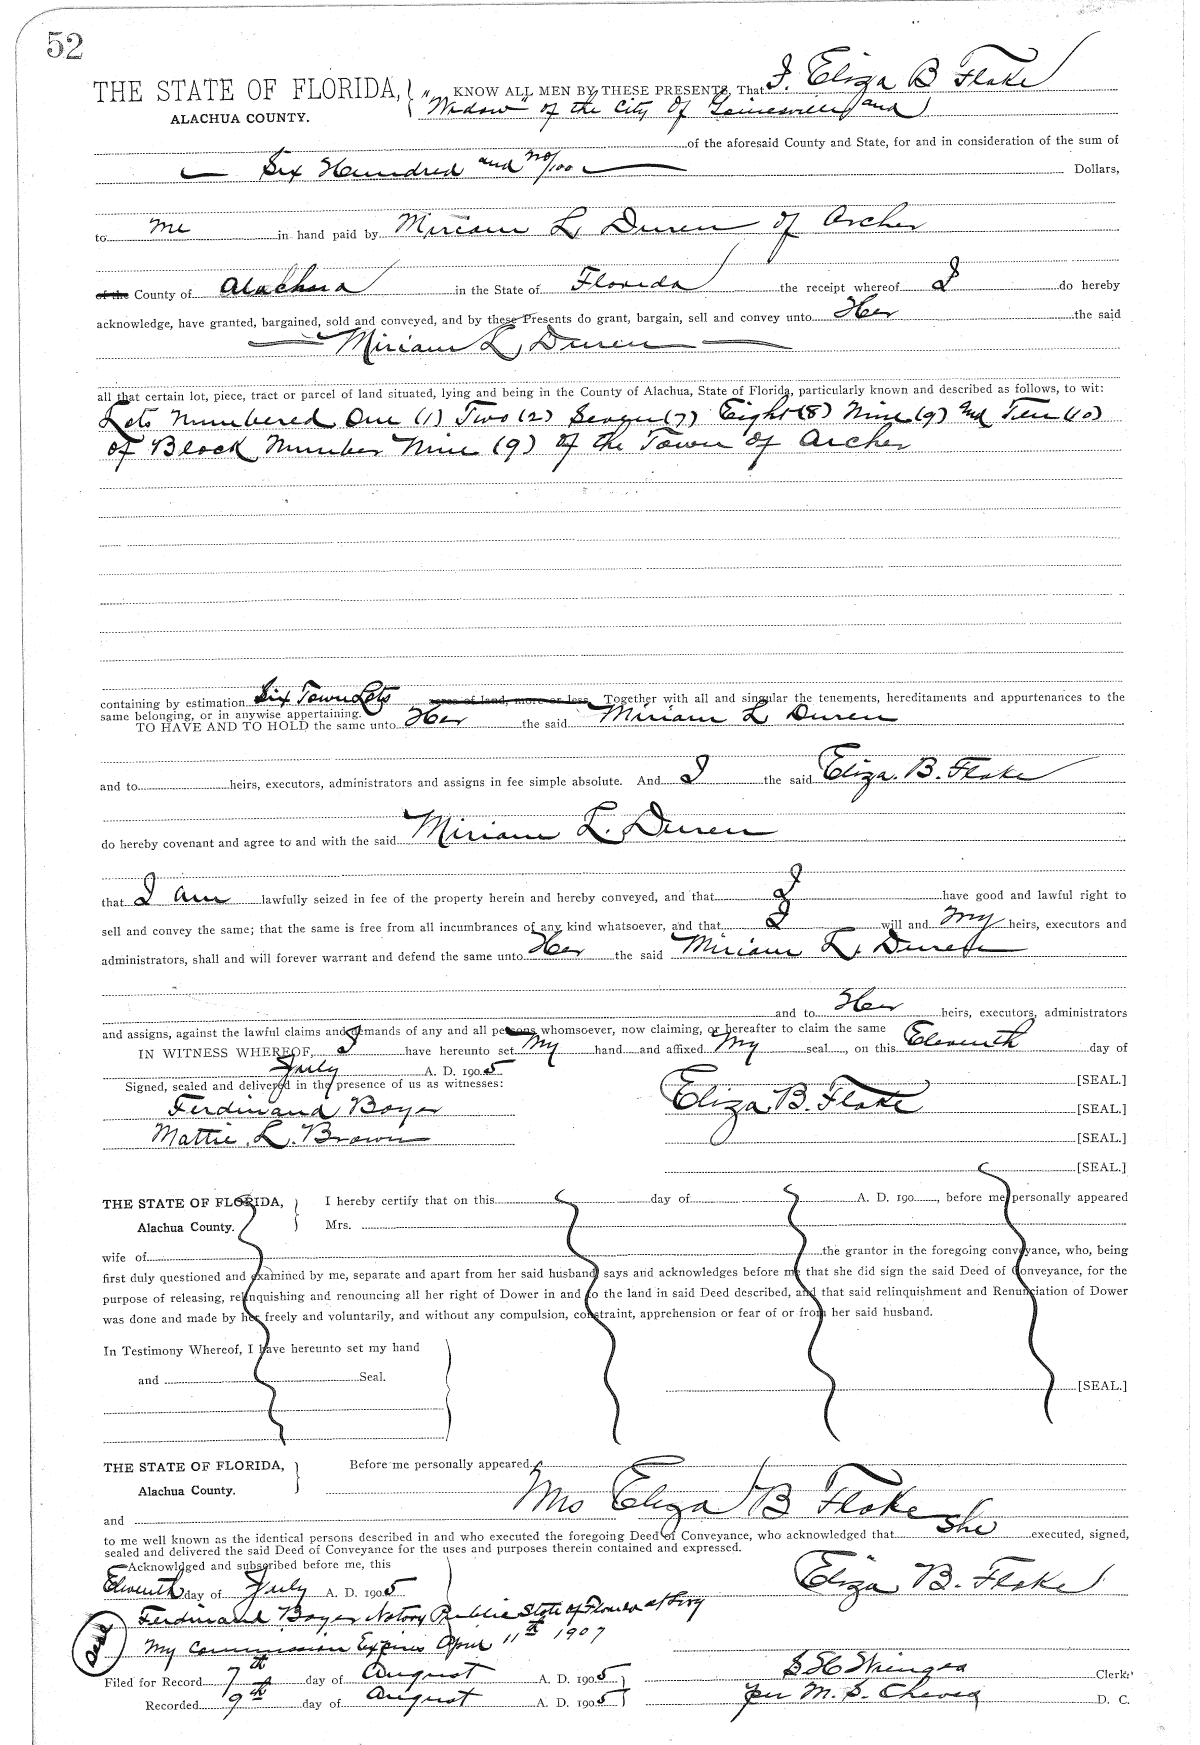 52
THE STATE OF FLORIDA, KNOW ALL MEN BY THESE PRESENTS, That I. Eliza B Flake
ALACHUA COUNTY. "Widow" of the City Of Gainesville and
of the aforesaid County and State, for and in consideration of the sum of
Six Hundred and no/100 Dollars,
to me in hand paid by Miriam L Duren of Archer
of the County of Alachua in the State of Florida the receipt whereof I do hereby
acknowledge, have granted, bargained, sold and conveyed, and by these Presents do grant, bargain, sell and convey unto Her the said
Miriam L Duren
all that certain lot, piece, tract or parcel of land situated, lying and being in the County of Alachua, State of Florida, particularly known and described as follows, to wit:
Lots Numbered One (1) Two (2) Seven (7) Eight (8) Nine (9) and Ten (10)
of Block Number Nine (9) of the Town of Archer
containing by estimation Six Town Lots acres of land, more or less. Together with all and singular the tenements, hereditaments and appurtenances to the
same belonging, or in anywise appertaining.
TO HAVE AND TO HOLD the same unto Her the said Miriam L Duren
and to heirs, executors, administrators and assigns in fee simple absolute. And I the said Eliza. B. Flake
do hereby covenant and agree to and with the said Miriam L. Duren
that I am lawfully seized in fee of the property herein and hereby conveyed, and that I have good and lawful right to
sell and convey the same; that the same is free from all incumbrances of any kind whatsoever, and that I will and My heirs, executors and
administrators, shall and will forever warrant and defend the same unto Her the said Miriam L. Duren
and to Her heirs, executors, administrators
and assigns, against the lawful claims and demands of any and all persons whomsoever, now claiming, or hereafter to claim the same
IN WITNESS WHEREOF, I have hereunto set My hand and affixed My seal, on this Eleventh day of
July A. D. 1905
Signed, sealed and delivered in the presence of us as witnesses: [SEAL.]
Ferdinand Boyer Eliza. B. Flake [SEAL.]
Mattie. L. Brown [SEAL.]
[SEAL.]
THE STATE OF FLORIDA, I hereby certify that on this day of A. D. 190, before me personally appeared
Alachua County. Mrs.
wife of the grantor in the foregoing conveyance, who, being
first duly questioned and examined by me, separate and apart from her said husband says and acknowledges before me that she did sign the said Deed of Conveyance, for the
purpose of releasing, relinquishing and renouncing all her right of Dower in and to the land in said Deed described, and that said relinquishment and Renunciation of Dower
was done and made by her freely and voluntarily, and without any compulsion, constraint, apprehension or fear of or from her said husband.
In Testimony Whereof, I have hereunto set my hand
and Seal. [SEAL.]
THE STATE OF FLORIDA, Before me personally appeared
Alachua County.
and Mrs Eliza B Flake
to me well known as the identical persons described in and who executed the foregoing Deed of Conveyance, who acknowledged that she executed, signed,
sealed and delivered the said Deed of Conveyance for the uses and purposes therein contained and expressed.
Acknowldged and subscribed before me, this
Eleventh day of July A. D. 1905 Eliza B. Flake
Ferdinand Boyer Notary Public State of Florida at
Seal My Commission Expires April 11th 1907
Filed for Record 7th day of August A. D. 1905 S H Wienges Clerk.
Recorded 9th day of August A. D. 1905 per M. S. Cheves D. C.